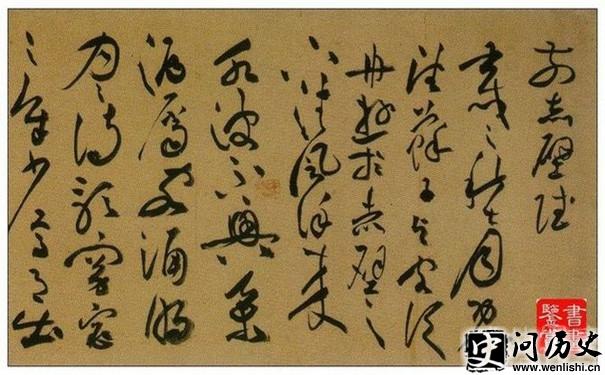 前赤壁賦
壬戌之秋七月既
望蘇子與客泛
舟遊於赤壁之
下清風徐來
水波不興舉
酒屬客誦明
月之詩歌窈窕
之章少焉月出
史问历史
www.wenlishi.cn